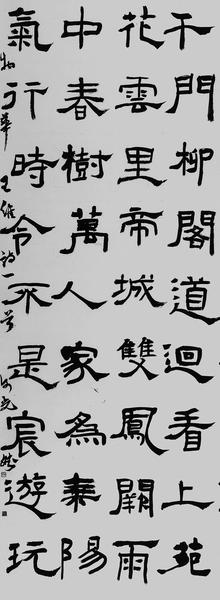 千門柳閣道迴看上苑
花雲里帝城雙鳳闕雨
中春樹萬人家為乘陽
氣行時令不是宸遊玩
物華 王維詩一首